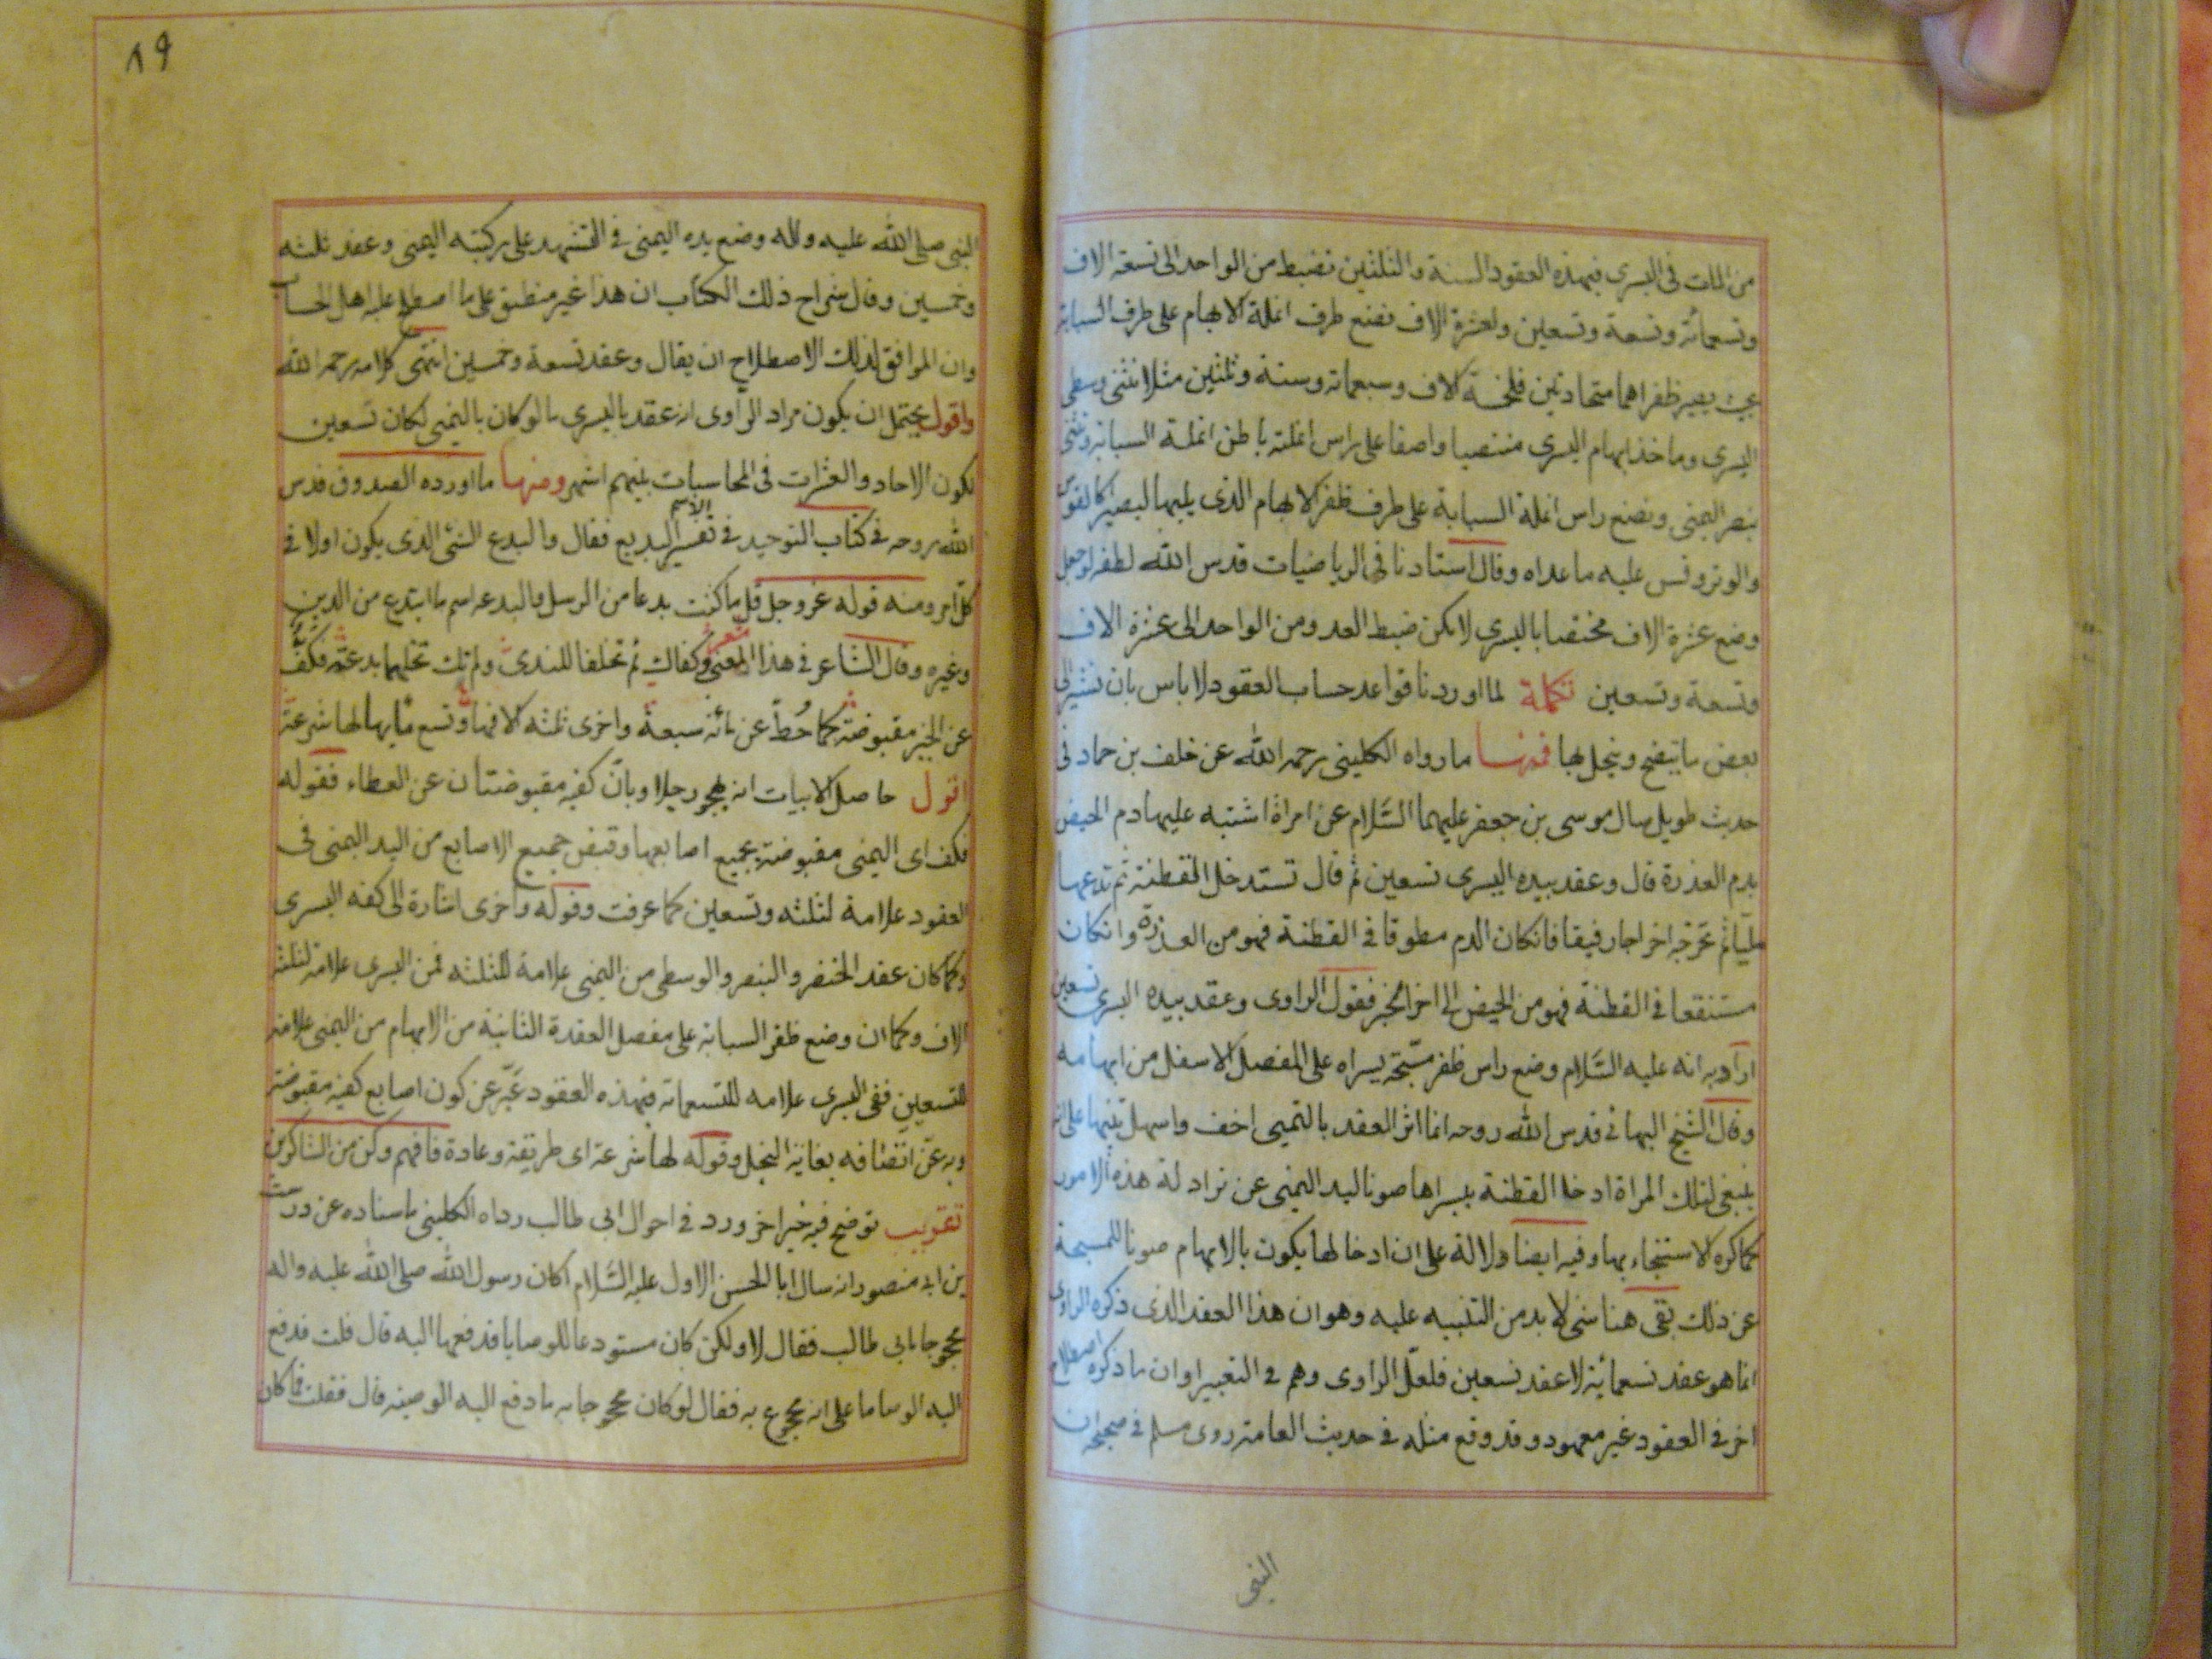 من المات فى اليسرى فبهذه العقود الستة والثلثين تضبط من الواحد الى تسعة الاف
وتسعمائة وتسعة وتسعين ولعشرة الاف تضع طرف انملة الابهام على طرف السبابة
بحيث يصير ظفراهما متحاذيين فلخمسة الاف وسبعمائة وستة وثلثين مثلا تثنى وسطى
اليسرى وماخذ ابهام اليسرى منتصبا واضعا على راس انملته باطن انملة السبابة وتثنى
بنصر اليمنى وتضع راس انملة السبابة على طرف ظفر الابهام الذى يليها ليصير كالقوس
والوتر وقس عليه ماعداه وقال استادنا فى الرياضيات قدس الله لطفه لو جعل
وضع عشرة الاف مختصا باليسرى لامكن ضبط العدد من الواحد الى عشرة الاف
وتسعة وتسعين تكملة لما اوردنا قواعد حساب العقود لا باس بان نشير الى
بعض ما يتضح وينحل بها فمنها ما رواه الكلينى رحمه الله عن خلف بن حماد فى
حديث طويل سال موسى بن جعفر عليهما السلام عن امراة اشتبه عليها دم الحيض
بدم العذرة قال وعقد بيده اليسرى تسعين ثم قال تستدخل القطنة ثم تدعها
مليا ثم تخرجه اخراجا رفيقا فانكان الدم مطوقا فى القطنة فهو من العذرة وانكان
مستنقعا فى القطنة فهو من الحيض الى اخر الخبر فقول الراوى وعقد بيده اليسرى تسعين
اراد به انه عليه السلام وضع راس ظفر مسبحة يسراه على المفصل الاسفل من ابهامه
وقال الشيخ البهائى قدس الله روحه انما اثر العقد باليسرى مع ان العقد باليمنى اخف واسهل تنبيها على انه
ينبغى لتلك المراة ادخال القطنة بيسراها صونا لليد اليمنى عن مزاولة هذه الامور
كما كره الاستنجاء بها وفيه ايضا دلالة على ان ادخالها يكون بالابهام صونا للمسبحة
عن ذلك بقى هنا شى لا بد من التنبيه عليه وهو ان هذا العقد الذى ذكره الراوى
انما هو عقد تسعمائة لا عقد تسعين فلعل الراوى وهم فى التعبير او ان ما ذكره اصطلاح
اخر فى العقود غير معهود وقد وقع مثله فى حديث العامة روى مسلم فى صحيحه ان
النبى
٨٩
النبى صلى الله عليه واله وضع يده اليمنى فى التشهد على ركبته اليمنى وعقد ثلثة
وخمسين وقال شراح ذلك الكتاب ان هذا غير منطبق على ما اصطلح عليه اهل الحساب
وان الموافق لذلك الاصطلاح ان يقال وعقد تسعة وخمسين انتهى كلامه رحمه الله
واقول يحتمل ان يكون مراد الراوى انه عقد باليسرى ما لو كان باليمنى لكان تسعين
لكون الاحاد والعشرات فى المحاسبات بينهم اشهر ومنها ما اورده الصدوق قدس
الله روحه فى كتاب التوحيد فى تفسير الاسم البديع فقال والبدع الشئ الذى يكون اولا فى
كل امر ومنه قوله عز وجل قل ما كنت بدعا من الرسل والبدعة اسم ما ابتدع من الدين
وغيره وقال الشاعر فى هذا المعنى شعر وكفاك لم تخلقا للندى ولم تك بخلهما بدعة فكف
عن الخير مقبوضة كما حط عن مائة سبعة واخرى ثلثة الافها وتسع مأيها لها شرعة
اقول حاصل الابيات انه يهجو رجلا وبان كفيه مقبوضتان عن العطاء فقوله
فكف اى اليمنى مقبوضة بجميع اصابعها وقبض جميع الاصابع من اليد اليمنى فى
العقود علامة لثلثة وتسعين كما عرفت وقوله واخرى اشارة الى كفه اليسرى
وكما كان عقد الخنصر والبنصر والوسطى من اليمنى علامة للثلثة فمن اليسرى علامة لثلثة
الاف وكما ان وضع ظفر السبابة على مفصل العقدة الثانية من الابهام من اليمنى علامة
للتسعين ففى اليسرى علامه للتسعمائة فبهذه العقود عبر عن كون اصابع كفيه مقبوضة
وبه عن اتصافه بغاية البخل وقوله لها شرعة اى طريقة وعادة فافهم وكن من الشاكرين
تقريب توضح فيه خبر اخر ورد فى احوال ابى طالب رواه الكلينى باسناده عن درست
بن ابى منصور انه سال ابا الحسن الاول عليه السلام اكان رسول الله صلى الله عليه واله
محجوجا بابى طالب فقال لا ولكن كان مستودعا للوصايا فدفعها اليه قال قلت فدفع
اليه الوصايا على انه محجوج به فقال لو كان محجوجا به ما دفع اليه الوصية قال فقلت فما كان